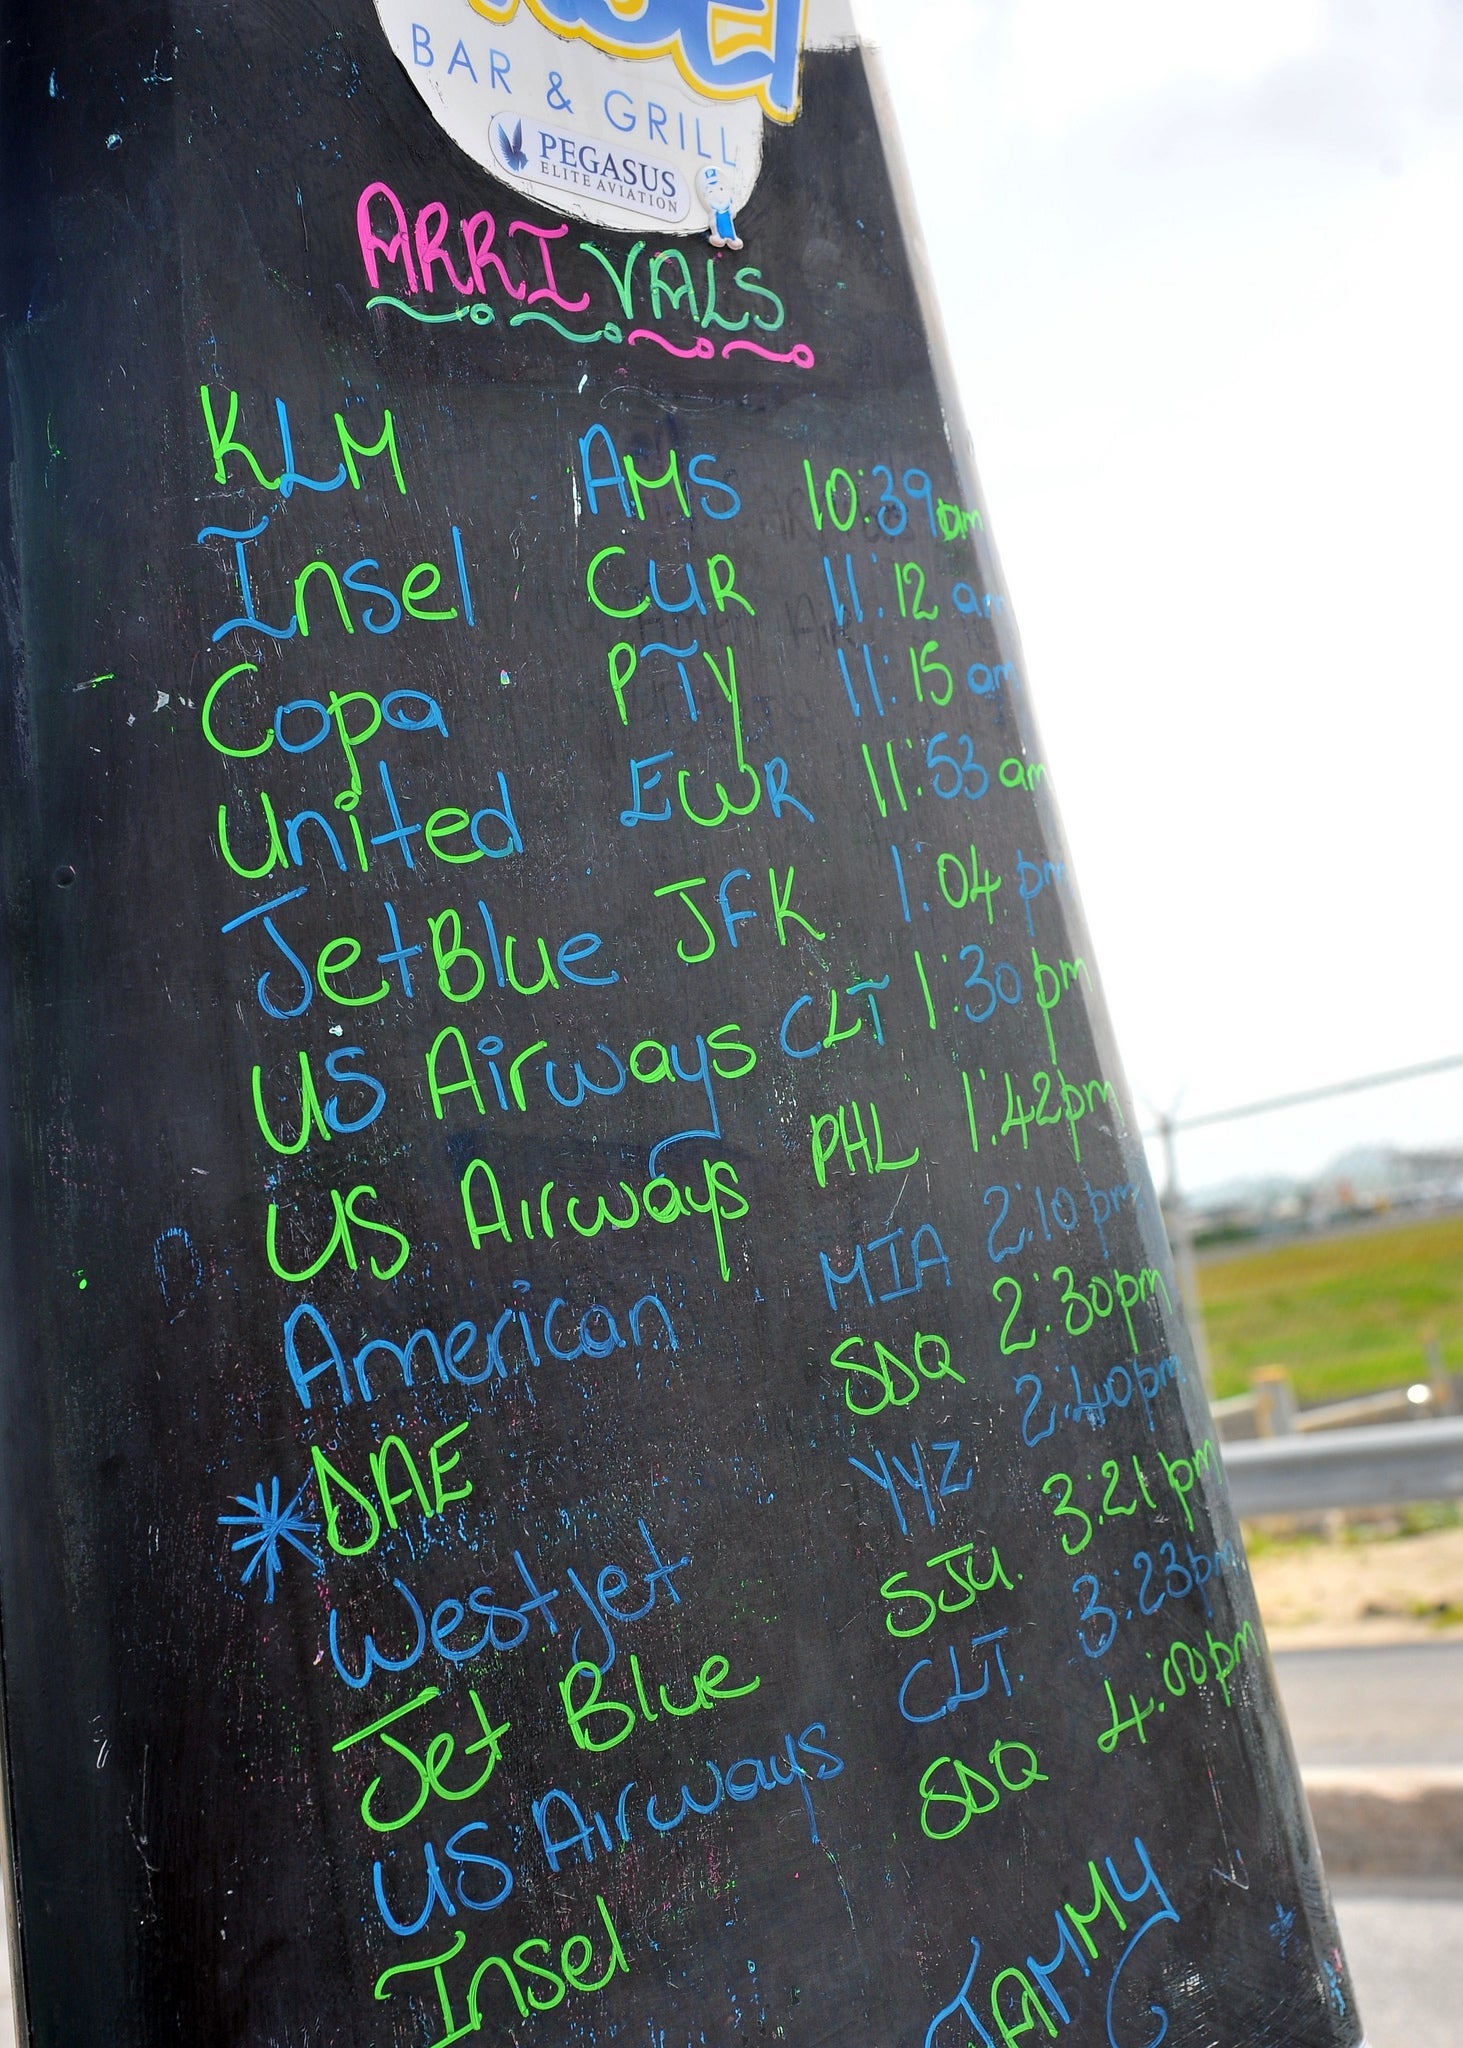 BAR & GRILL
PEGASUS
ELITE AVIATION
ARRIVALS
KLM AMS 10:39am
Insel CUR 11:12 am
Copa PTY 11:15 am
United EWR 11:53 am
JetBlue JFK 1:04 pm
US Airways CLT 1:30 pm
US Airways PHL 1:42pm
American MIA 2:10 pm
*DAE SDQ 2:30pm
Westjet YYZ 2:40pm
Jet Blue SJU. 3:21 pm
US Airways CLT. 3:23pm
Insel SDQ 4:00pm
JAMMY